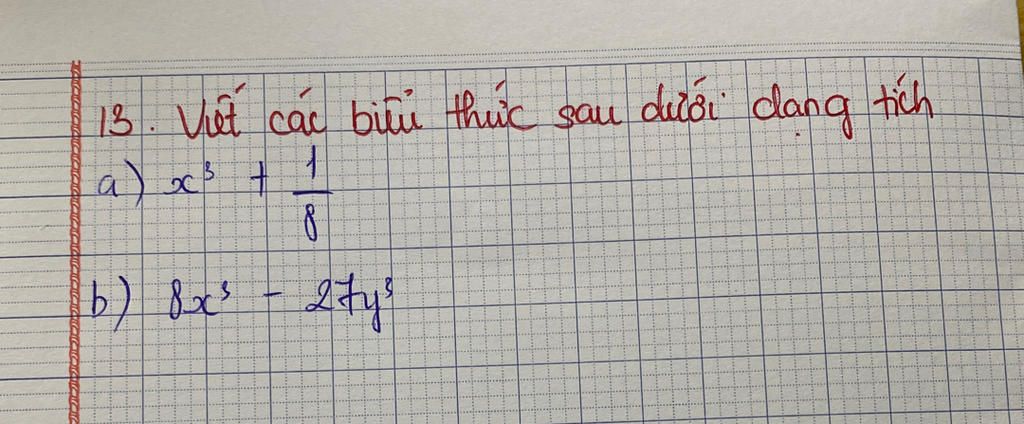 13. Viết các biểu thức sau dưới dạng tích
a) x³ + 1/8
b) 8x³ - 27y³